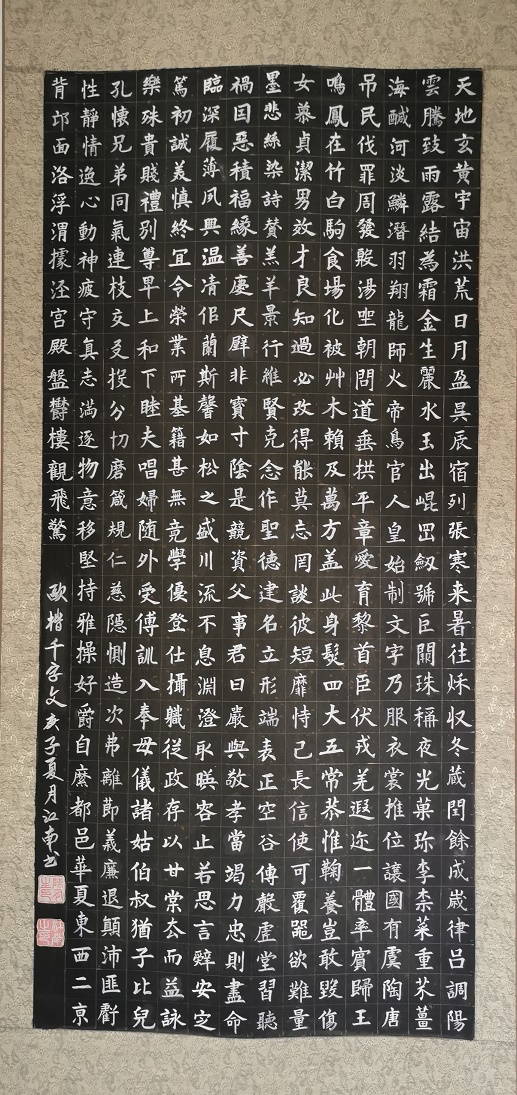 天地玄黃宇宙洪荒日月盈昃辰宿列張寒来暑往秌収冬蔵閏餘成嵗律吕調陽
雲騰致雨露結為霜金生麗水玉出崐岡劔號巨闕珠稱夜光菓珎李柰菜重芥薑
海醎河淡鱗潛羽翔龍師火帝鳥官人皇始制文字乃服衣裳推位讓國有虞陶唐
吊民伐罪周發殷湯坐朝問道垂拱平章愛育黎首臣伏戎羌遐迩一體率賓歸王
鳴鳳在竹白駒食場化被艸木賴及萬方盖此身髮四大五常恭惟鞠養豈敢毀傷
女慕貞潔男效才良知過必改得能莫忘罔談彼短靡恃己長信使可覆器欲難量
墨悲絲染詩賛羔羊景行維賢克念作聖德建名立形端表正空谷傳聲虛堂習聽
禍因惡積福緣善慶尺璧非寶寸陰是競資父事君曰嚴與敬孝當竭力忠則盡命
臨深履薄夙興温凊佀蘭斯馨如松之盛川流不息淵澄取暎容止若思言辤安定
篤初誠美慎終宜令榮業所基籍甚無竟學優登仕攝職從政存以甘棠去而益詠
樂殊貴賤禮別尊卑上和下睦夫唱婦随外受傅訓入奉母儀諸姑伯叔猶子比兒
孔懐兄弟同氣連枝交友投分切磨箴規仁慈隱惻造次弗離節義廉退顛沛匪虧
性靜情逸心動神疲守真志滿逐物意移堅持雅操好爵自縻都邑華夏東西二京
背邙面洛浮渭據涇宫殿盤欝樓觀飛驚 歐楷千字文亥子夏月江南书